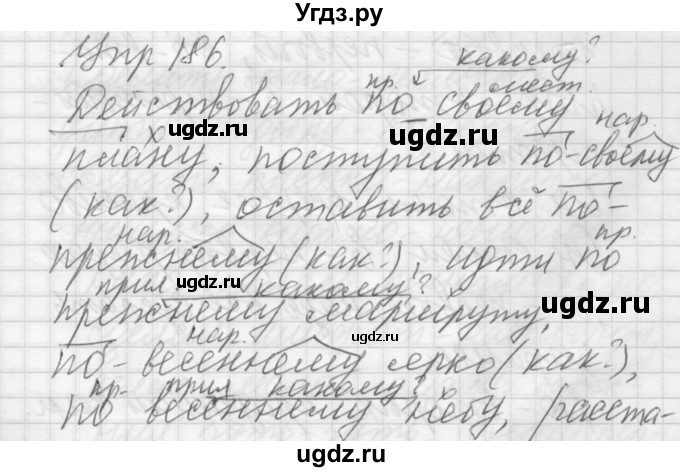 Угдз.ру
Упр 186. какому?
пр. мест.
Действовать по своему
нар.
плану, поступить по-своему
(как?), оставить всё по-
нар. пр.
прежнему (как?), идти по
прил какому?
прежнему маршруту,
нар.
по-весеннему ярко (как?),
пр. прил какому?
по весеннему небу, (расста-
ugdz.ru ugdz.ru
ugdz.ru ugdz.ru
ugdz.ru ugdz.ru
ugdz.ru ugdz.ru
ugdz.ru